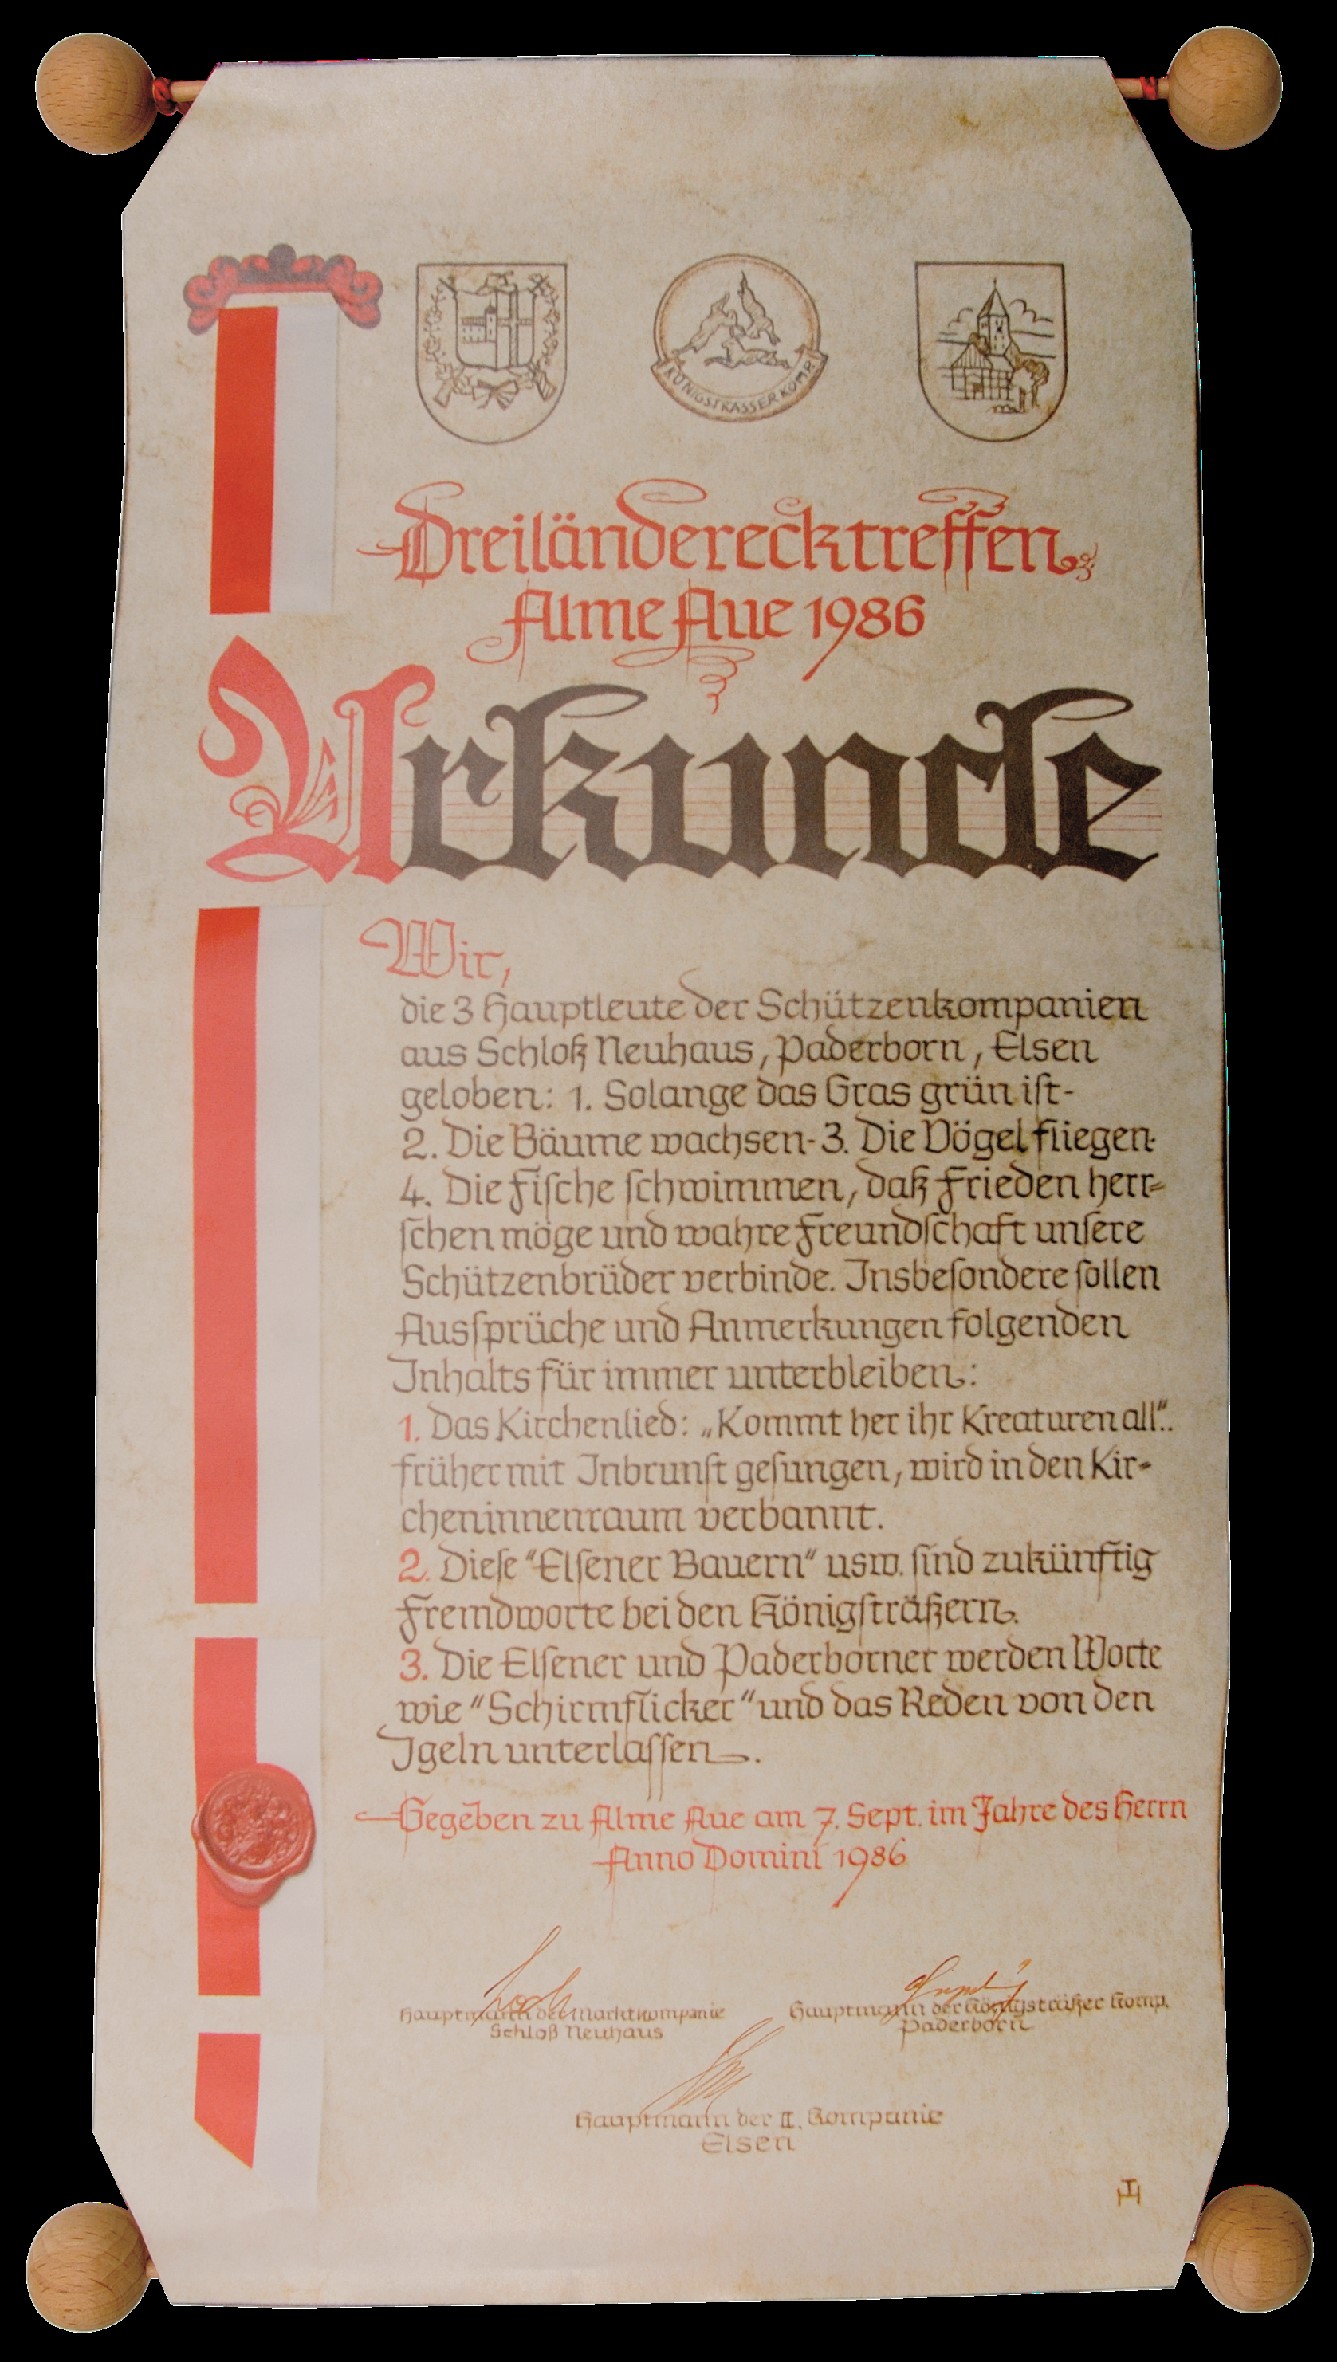 KÖNIGSTRÄSSER KOMP.
Dreiländerecktreffen
Alme Aue 1986
Urkunde
Wir,
die 3 Hauptleute der Schützenkompanien
aus Schloß Neuhaus, Paderborn, Elsen
geloben: 1. Solange das Gras grün ist-
2. Die Bäume wachsen- 3. Die Vögel fliegen-
4. Die Fische schwimmen, daß Frieden herr-
schen möge und wahre Freundschaft unsere
Schützenbrüder verbinde. Insbesondere sollen
Aussprüche und Anmerkungen folgenden
Inhalts für immer unterbleiben:
1. Das Kirchenlied: „Kommt her ihr Kreaturen all"..
früher mit Inbrunst gesungen, wird in den Kir-
cheninnenraum verbannt.
2. Diese "Elsener Bauern" usw. sind zukünftig
Fremdworte bei den Königsträßern.
3. Die Elsener und Paderborner werden Worte
wie "Schirmflicker" und das Reden von den
Igeln unterlassen.
Gegeben zu Alme Aue am 7. Sept. im Jahre des Herrn
Anno Domini 1986
Hauptmann der Marktkompanie
Schloß Neuhaus
Hauptmann der Königsträßer Komp.
Paderborn
Hauptmann der II. Kompanie
Elsen